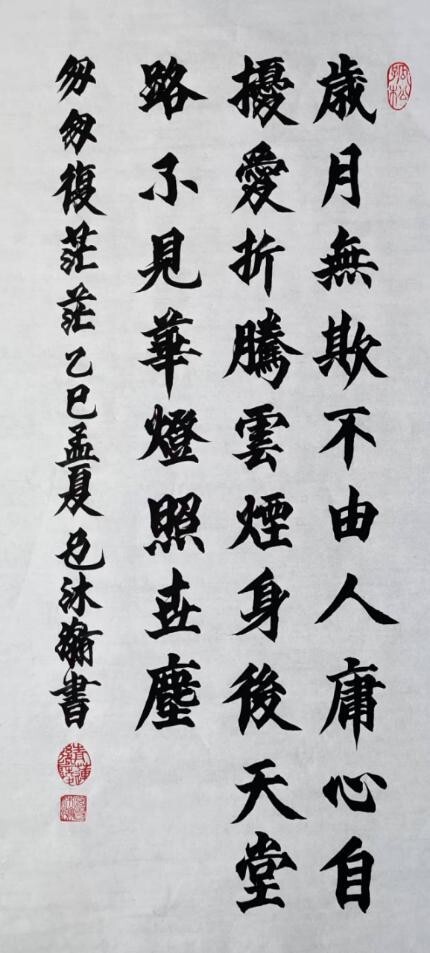 歲月無欺不由人庸心自
擾愛折騰雲煙身後天堂
路不見華燈照世塵
匆匆復茫茫乙巳孟夏包沐瀚書